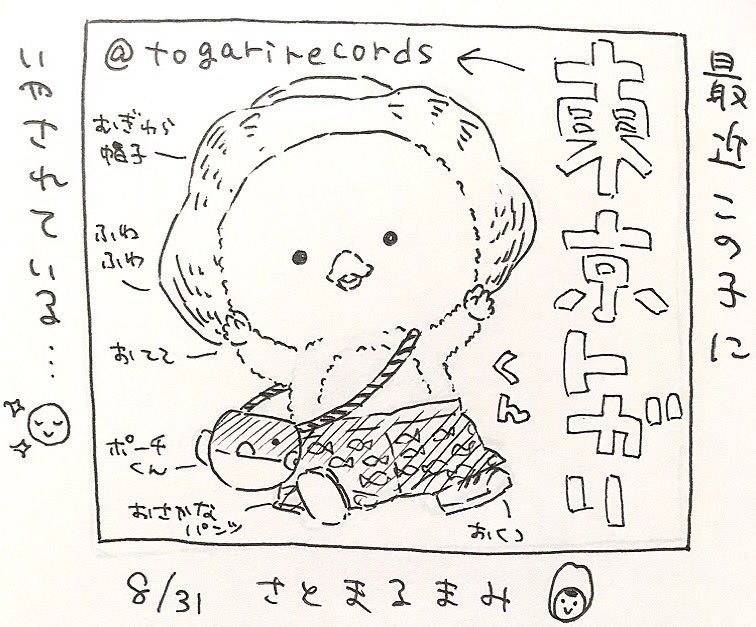 最近この子に
いやされている…
@togarirecords
東京トガリ
くん
むぎわら
帽子
ふわ
ふわ
おてて
ポーチ
くん
おさかな
パンツ
おくつ
8/31 さとまるまみ